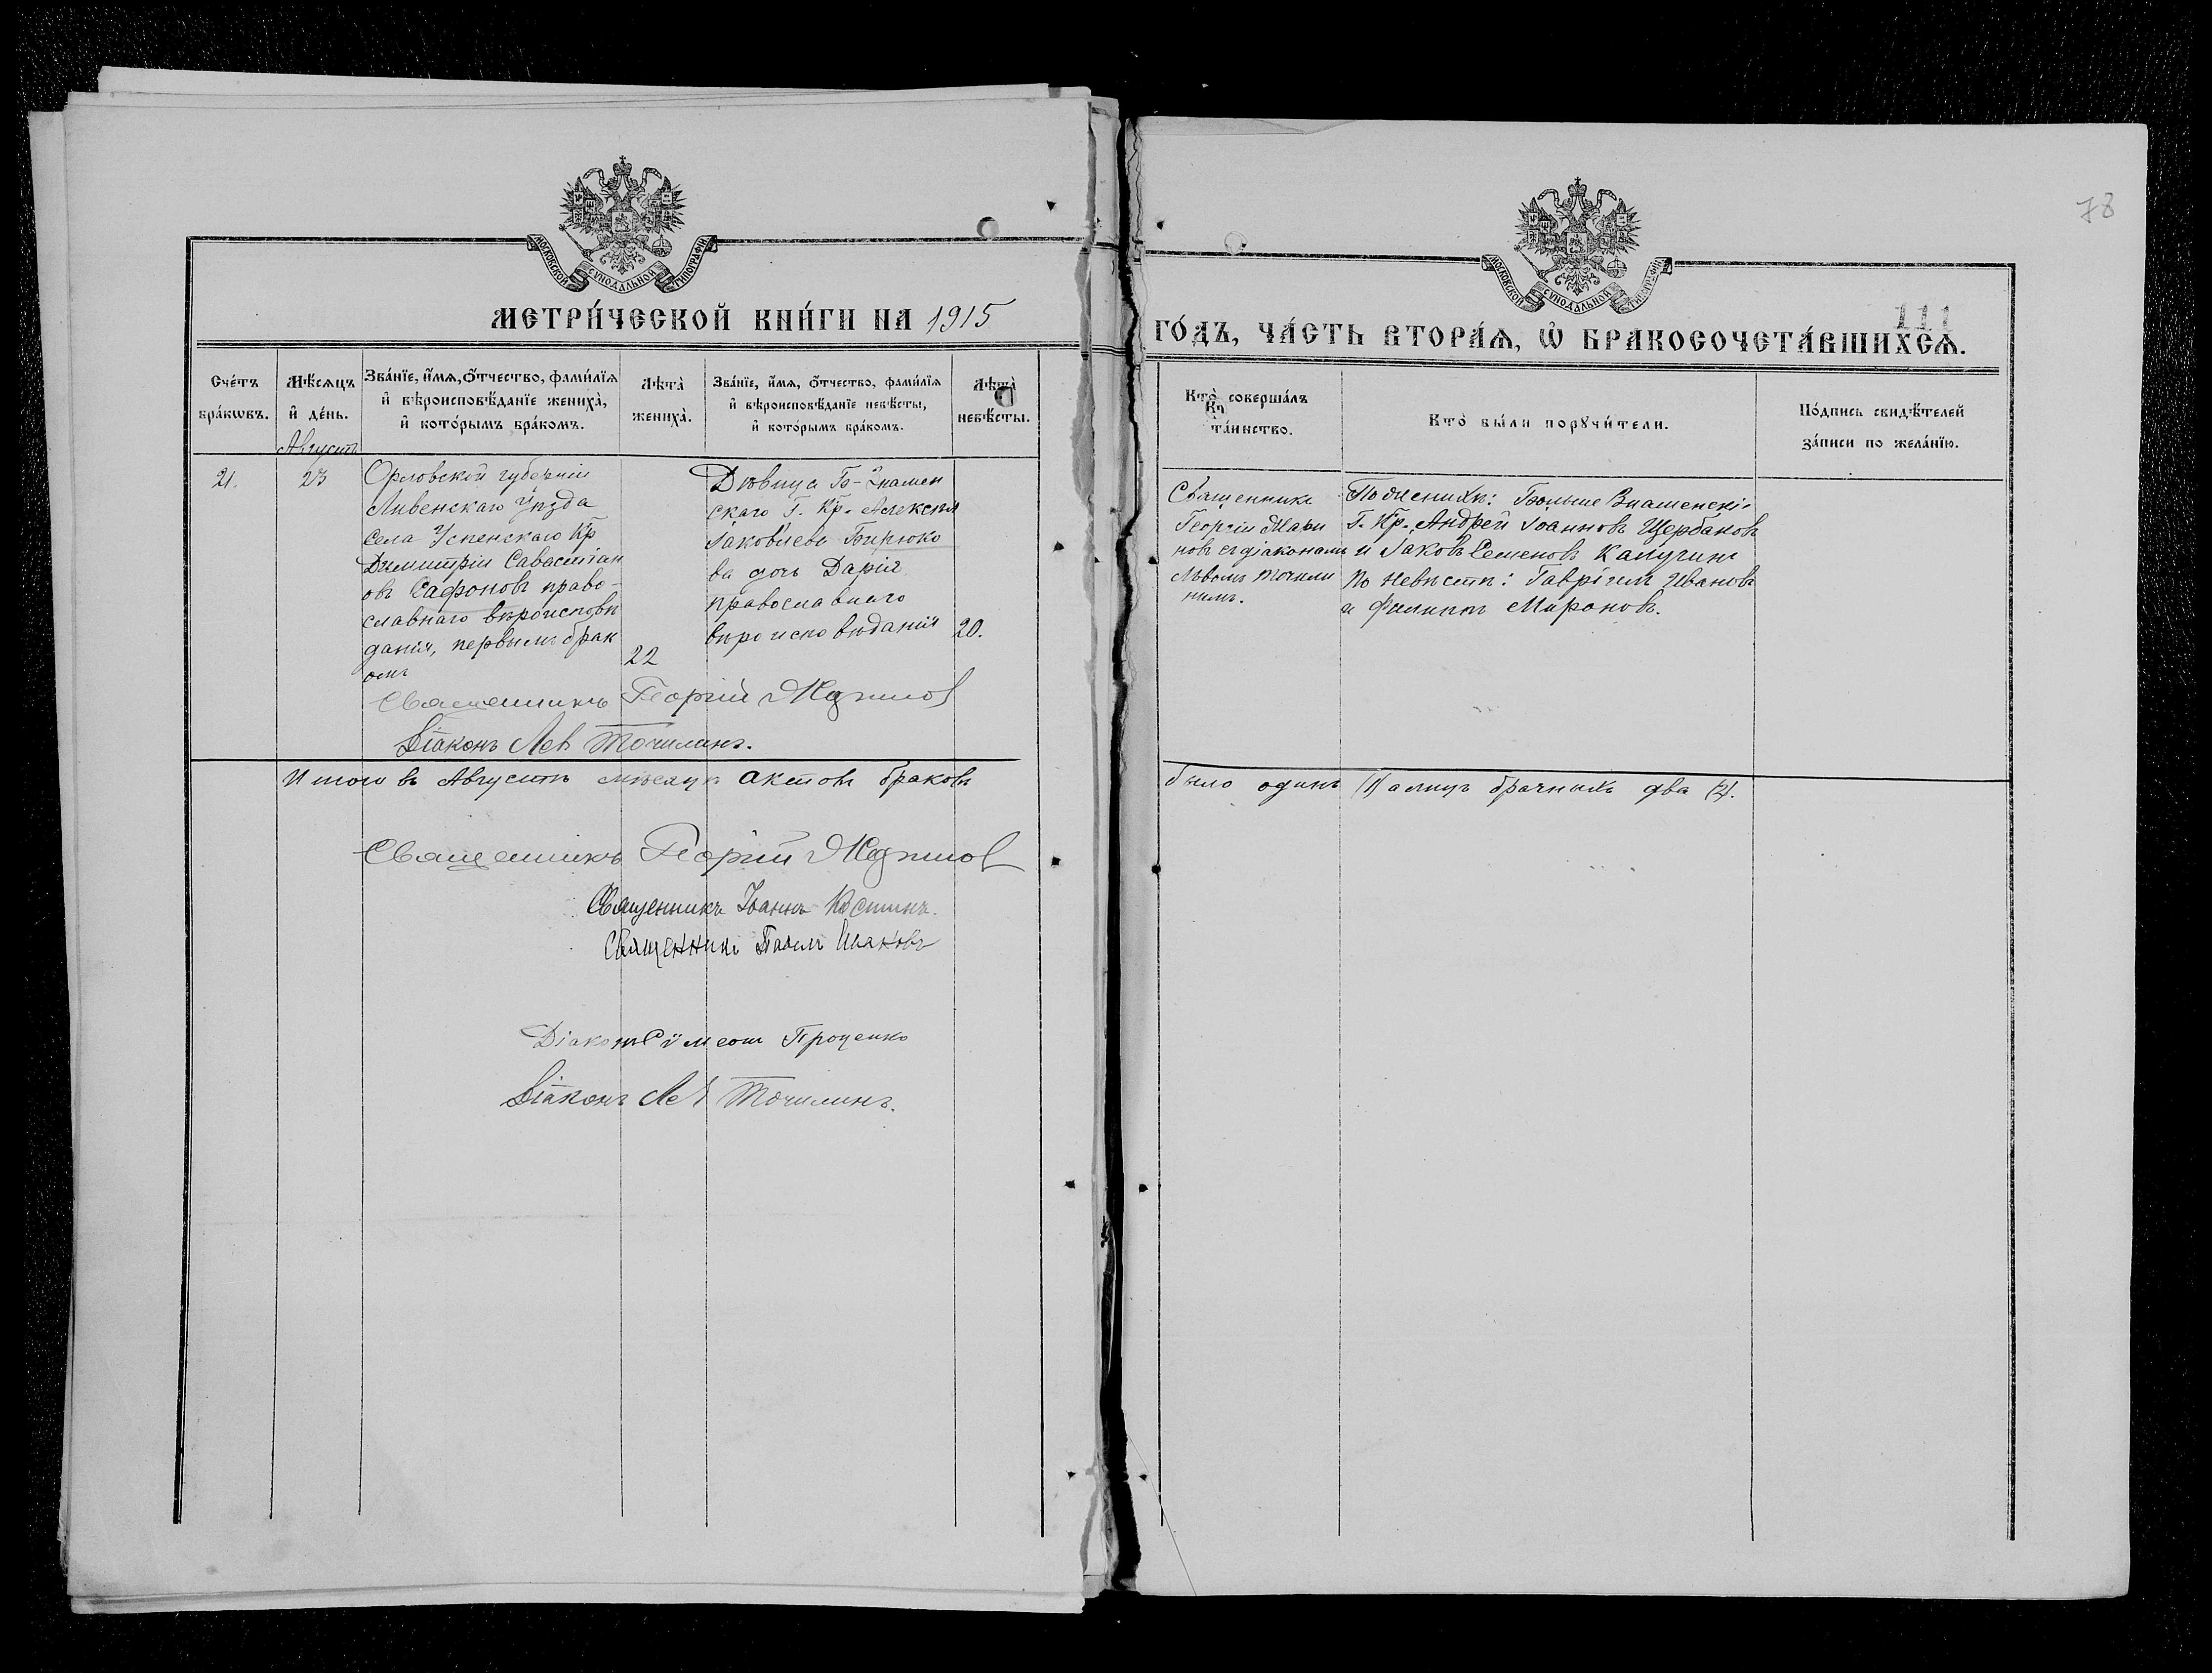 78
МОСКОВСКОЙ СѴНОДАЛЬНОЙ ТИПОГРАФІИ
МОСКОВСКОЙ СѴНОДАЛЬНОЙ ТИПОГРАФІИ
111
МЕТРИ́ЧЕСКОЙ КНИ́ГИ НА 1915
ГО́ДЪ, ЧА́СТЬ ВТОРА́Ѧ, Ѡ҆ БРАКОСОЧЕТА́ВШИХСѦ.
Сче́тъ бра́кѡвъ.
Мѣ́сяцъ и҆ де́нь.
Зва́нїе, и҆́мѧ, ѻ҆́тчество, фами́лїѧ
и҆ вѣроисповѣ́данїе жениха̀,
и҆ кото́рымъ бра́комъ.
Лѣта̀ жениха̀.
Зва́нїе, и҆́мѧ, ѻ҆́тчество, фами́лїѧ
и҆ вѣроисповѣ́данїе невѣ́сты,
и҆ кото́рымъ бра́комъ.
Лѣта̀ невѣ́сты.
Кто̀ соверша́лъ
та́инство.
Кто̀ бы́ли порꙋчи́тели.
По́дпись свидѣ́телей
за́писи по жела́нїю.
Августъ
21.
23
Орловской губерніи
Ливенскаго Уѣзда
Села Успенскаго Кр
Димитрій Савастіан
овъ Сафоновъ право-
славнаго вѣроисповѣ
данія, первымъ брак
омъ
22
Дѣвица Б-Знамен
скаго Г. Кр. Алексѣя
Іаковлева Бирюко
ва дочь Дарія
православнаго
вѣроисповѣданія
20.
Священникъ
Георгій
новъ съ діакономъ
Львомъ Точили
нымъ.
По женихѣ: Больше Знаменскі
Г. Кр. Андрей Іоанновъ Щербаковъ
и Іаковъ Семеновъ Калугинъ
по невѣстѣ: Гавріилъ Ивановъ
и Филиппъ Мироновъ.
Священникъ Георгій
Діаконъ Лев Точилинъ.
Итого въ Августѣ мѣсяцѣ актовъ браковъ
было одинъ (1) а лицъ брачныхъ два (2).
Священникъ Георгій
Священникъ Іоаннъ Костинъ.
Священникъ Павелъ
Діаконъ Сѵмеонъ Проценко
Діаконъ Лев Точилинъ.